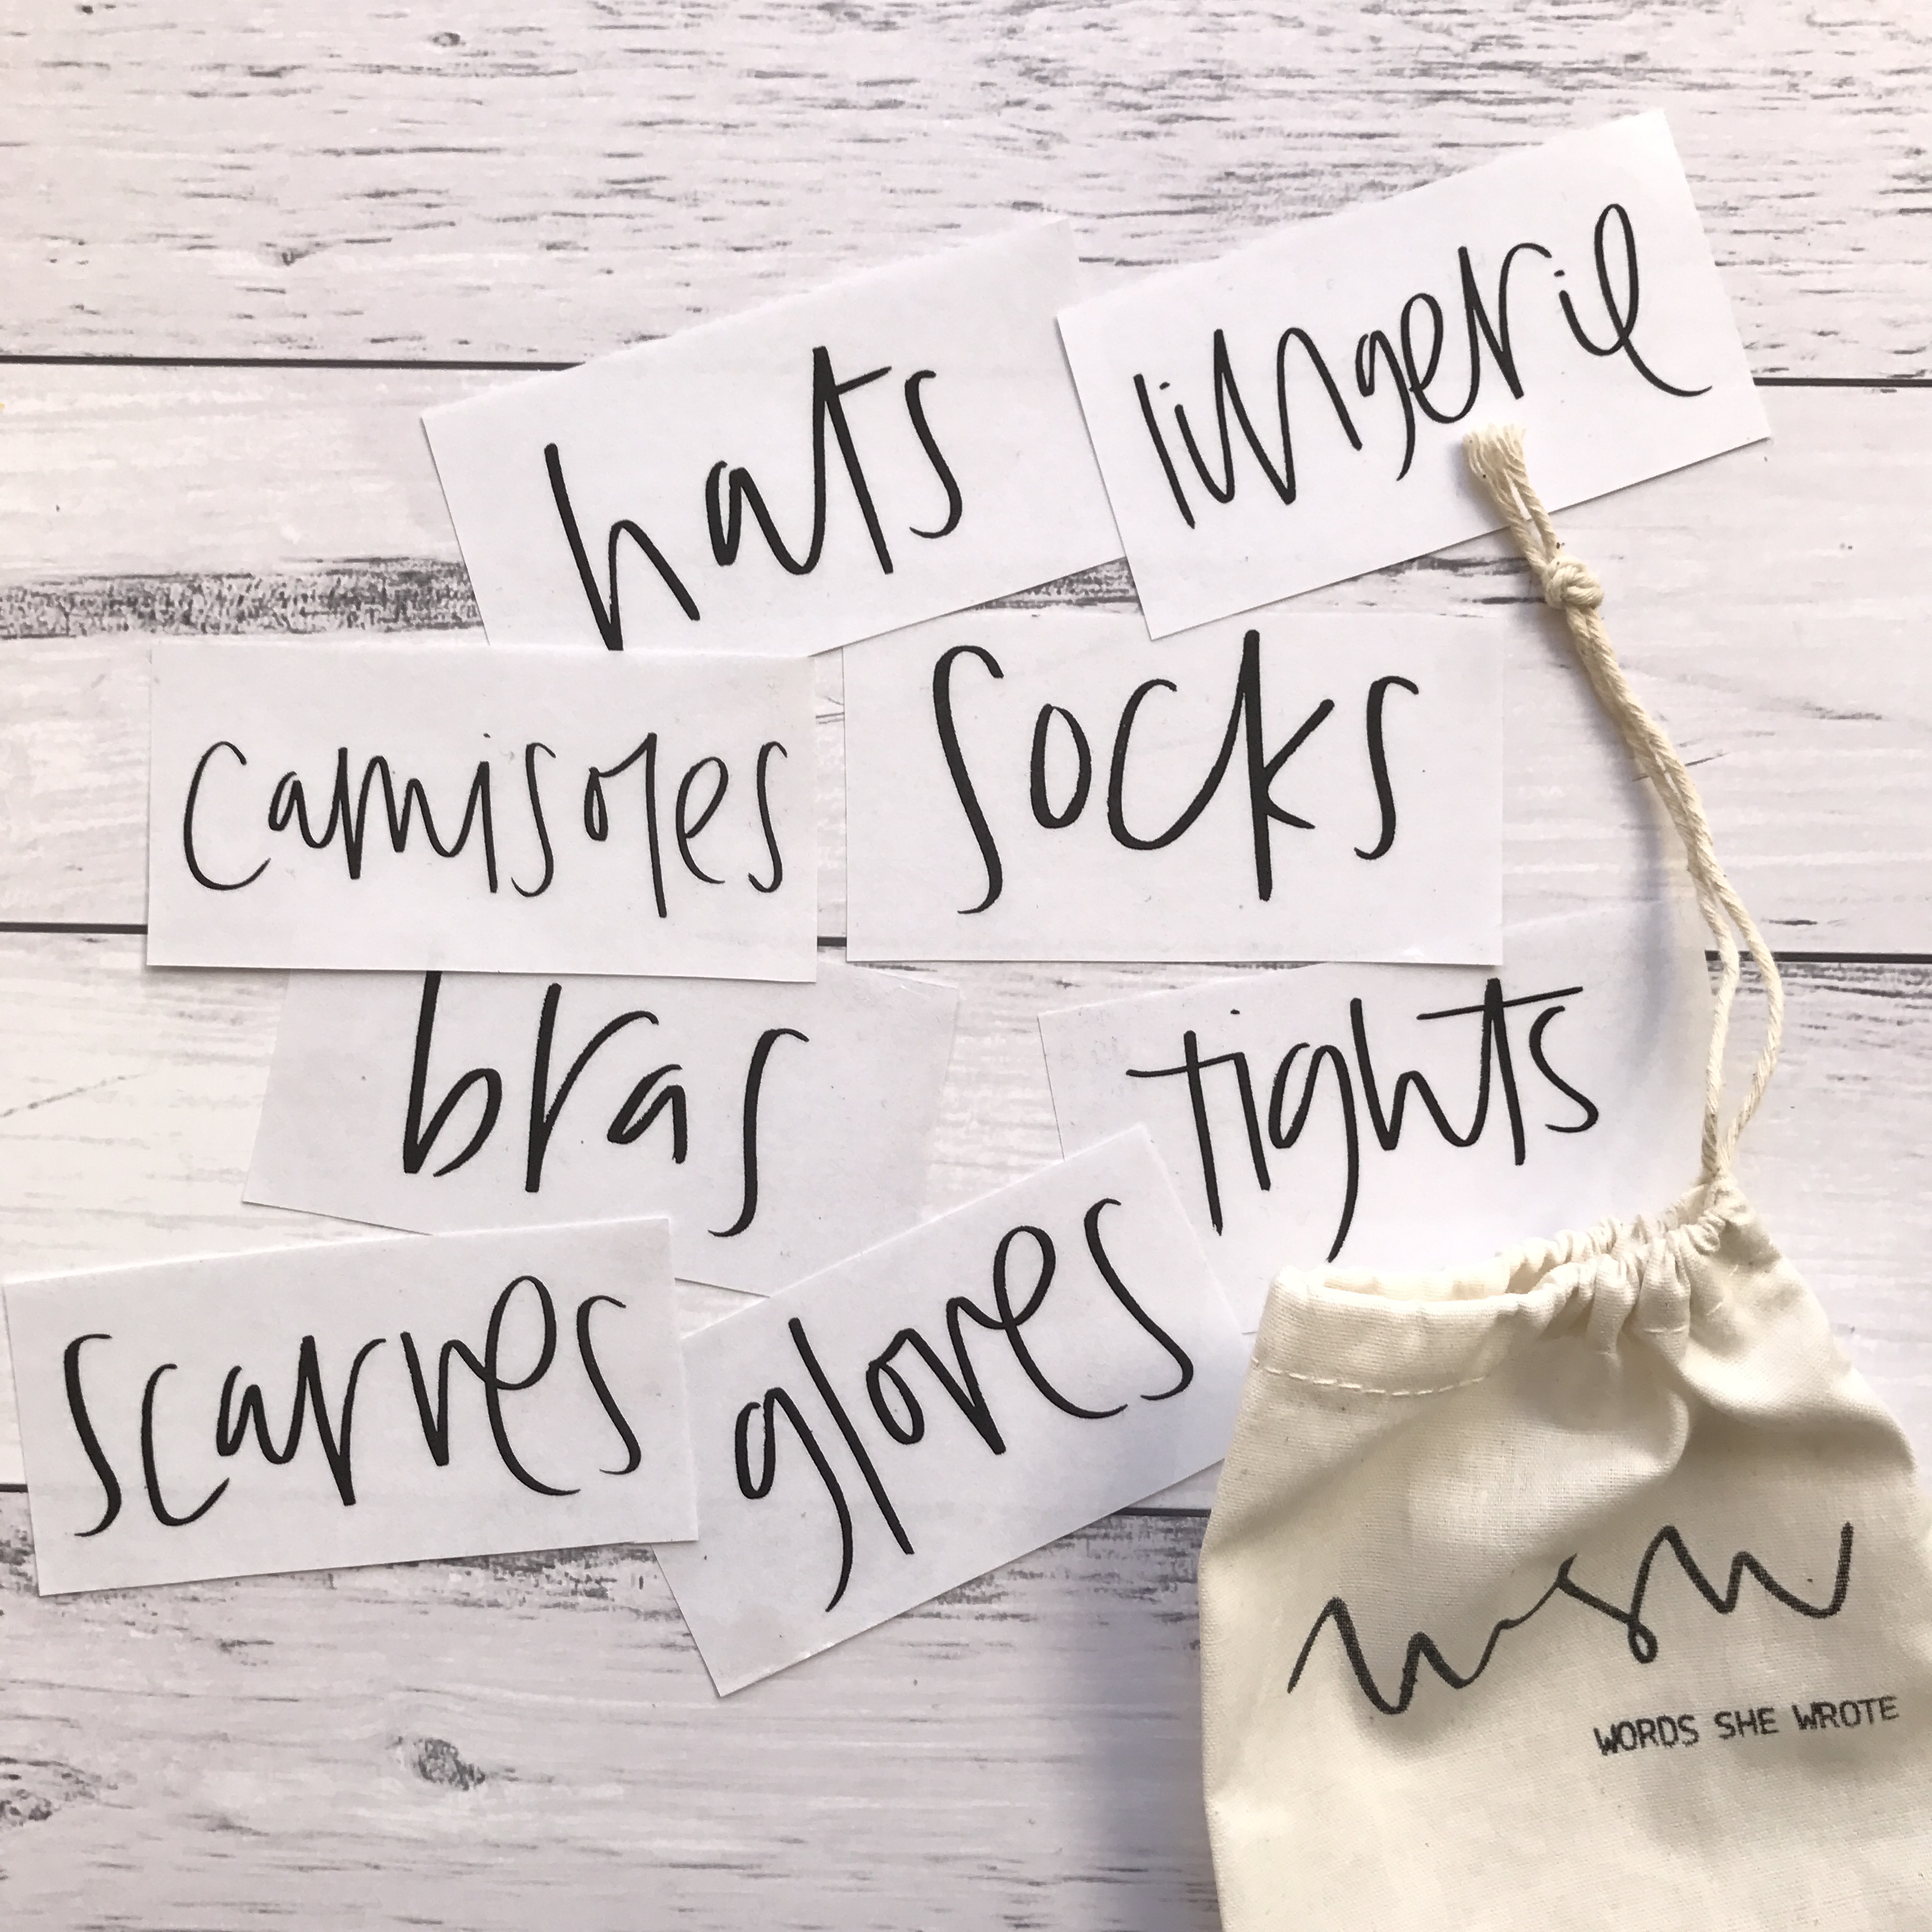 hats
lingerie
camisoles
socks
bras
tights
scarves
gloves
wsw
WORDS SHE WROTE